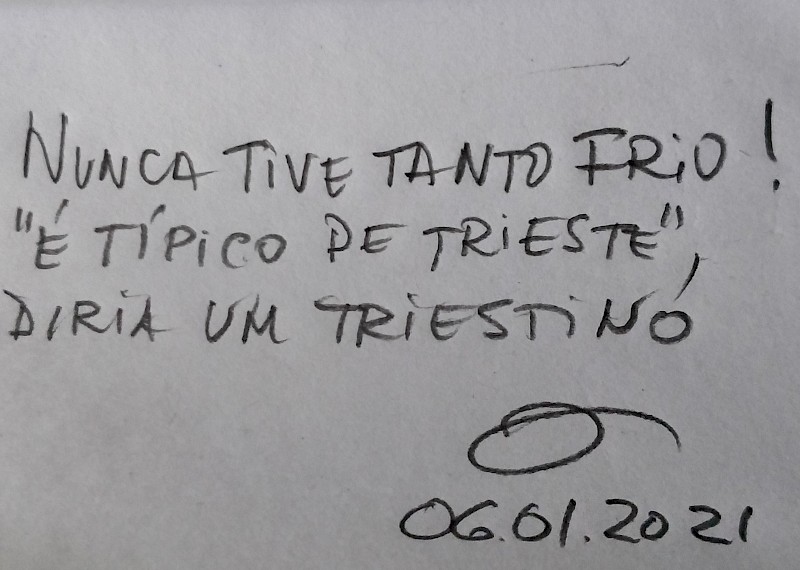 NUNCA TIVE TANTO FRIO!
"É TÍPICO DE TRIESTE",
DIRIA UM TRIESTINO
06.01.2021